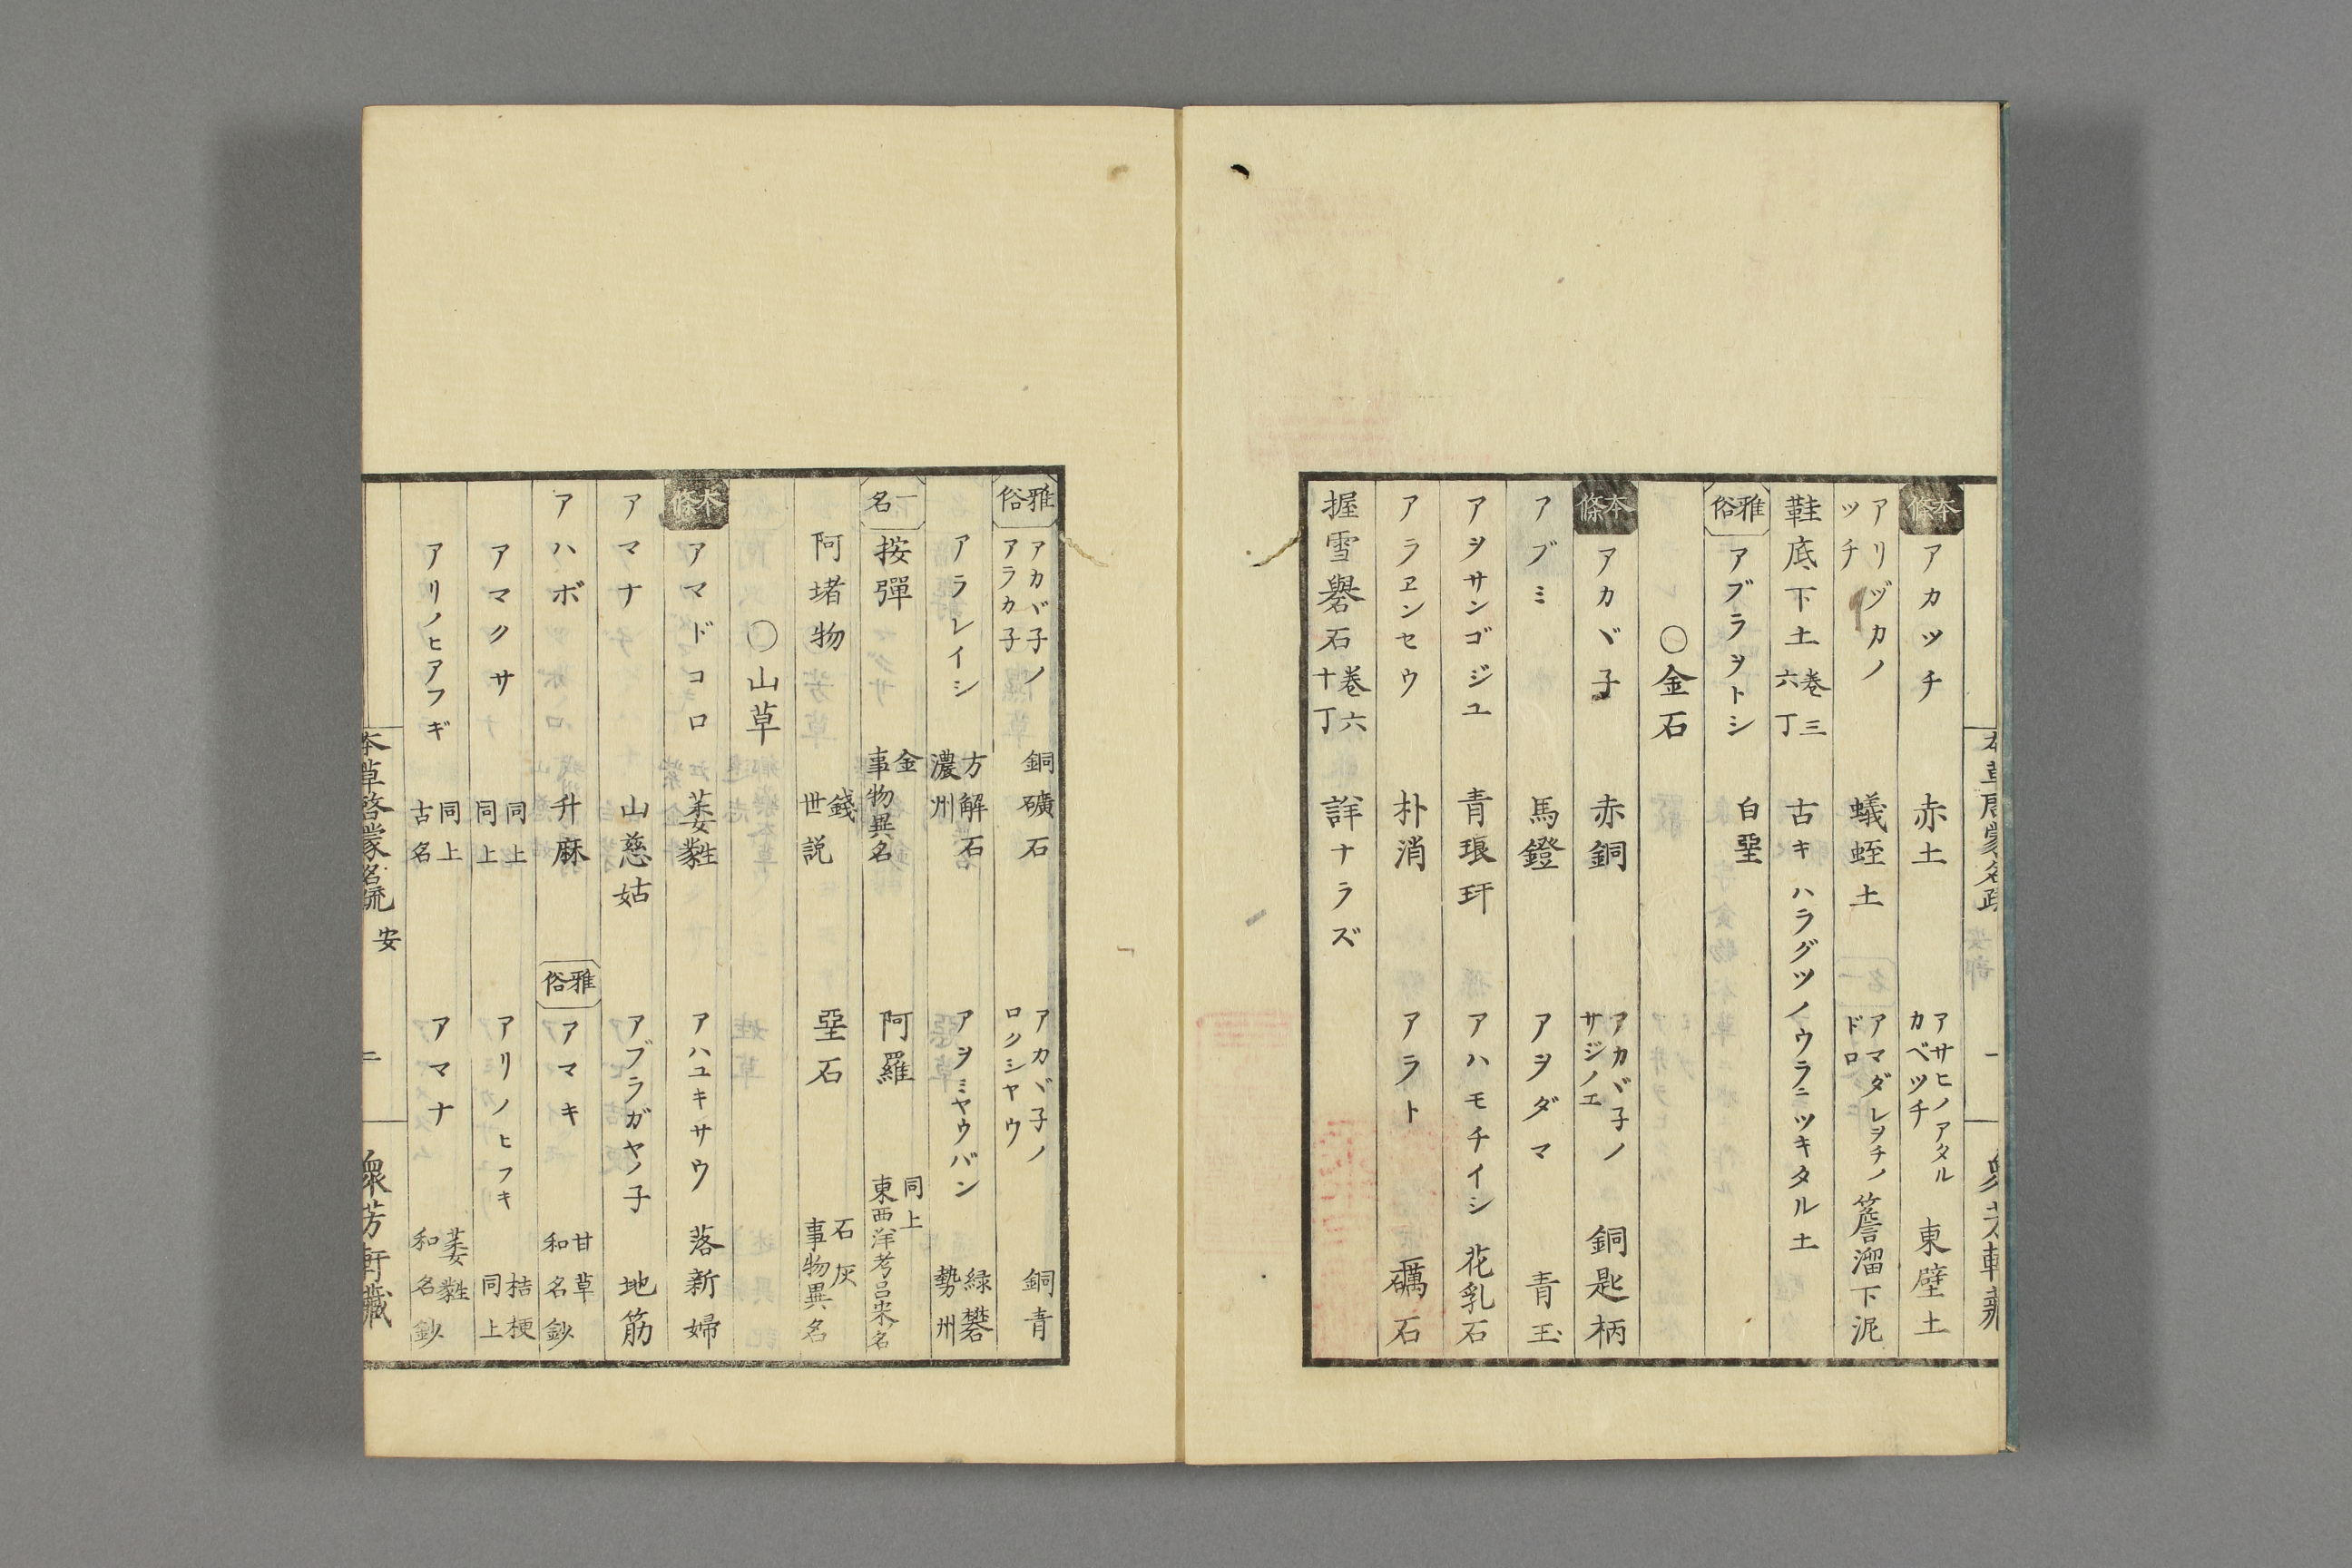 本條 アカツチ 赤土 アサヒノアタルカベツチ 東壁土
アリヅカノツチ 蟻蛭土 アマダレヲチノドロ 簷溜下泥
鞋底下土 巻三六丁 古キハラグツノウラニツキタル土
雅俗 アブラヲトシ 白堊
〇金石
本條 アカヾ子 赤銅 アカヾ子ノサジノエ 銅匙柄
アブミ 馬鐙 アヲダマ 青玉
アヲサンゴジユ 青琅玕 アハモチイシ 花乳石
アラヱンセウ 朴消 アラト 礪石
握雪礜石 巻六十丁 詳ナラズ
雅俗 アカヾ子ノアラカ子 銅礦石 アカヾ子ノロクシヤウ 銅青
アラレイシ 方解石 濃州 アヲミヤウバン 緑礬 勢州
一名 按彈 金 事物異名 阿羅 同上 東西洋考呂宋名
阿堵物 錢 世説 堊石 石灰 事物異名
〇山草
本條 アマドコロ 萎蕤 アハユキサウ 落新婦
アマナ 山慈姑 アブラガヤノ子 地筋
アハボ 升麻 雅俗 アマキ 甘草 和名鈔
アマクサ 同上 同上 アリノヒフキ 桔梗 同上
アリノヒアフギ 同上 古名 アマナ 萎蕤 和名鈔
本草啓蒙名疏 安 二 衆芳軒藏